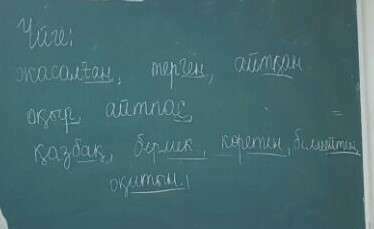 Үйге:
жасалған, терген, айтқан
оқыр, айтпас =
қазбақ, бермек, көретін, білмейтін,
оқитын,